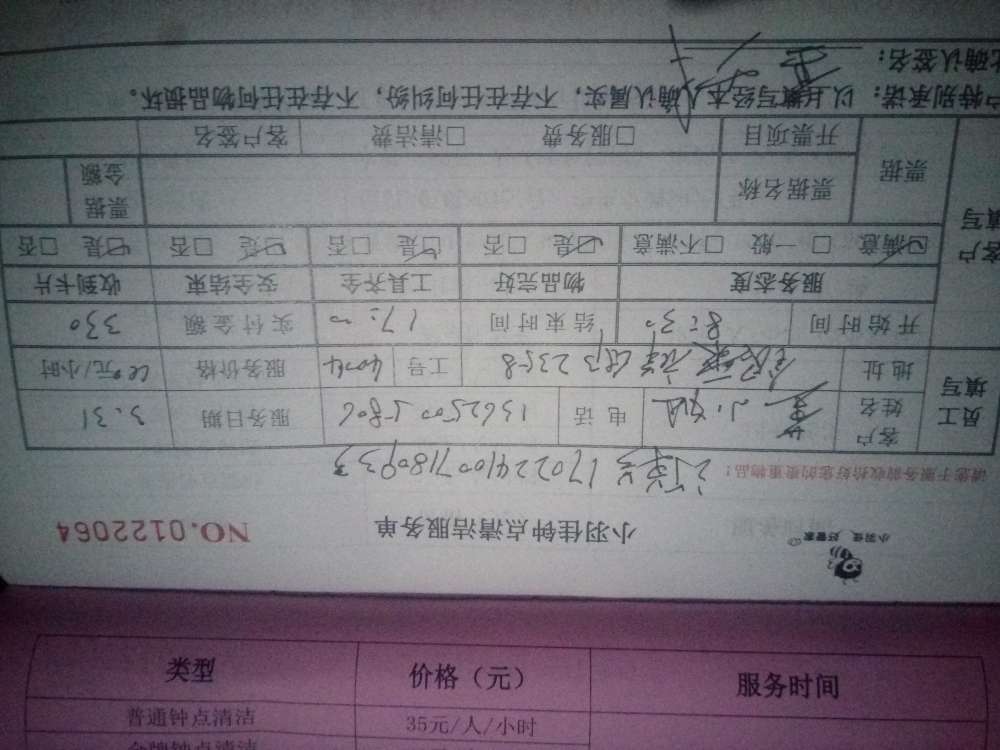 小羽佳 好管家
小羽佳钟点清洁服务单
NO.0122064
请您于服务前收拾好您的贵重物品!
订单号 1702241007180933
员工填写
客户姓名
电话 13625005806
服务日期 3.31
地址
工号 4004
服务价格 元/小时
开始时间 8:30
结束时间 17:00
实付金额 330
客户填写
服务态度 物品完好 工具齐全 安全结束 收到卡片
☑满意 □一般 □不满意 ☑是 □否 ☑是 □否 ☑是 □否 ☑是 □否
票据
票据名称
票据金额
开票项目 □服务费 □清洁费 客户签名
户特别承诺:以上填写经本人确认属实,不存在任何纠纷,不存在任何物品损坏。
确认签名:
类型 价格(元) 服务时间
普通钟点清洁 35元/人/小时